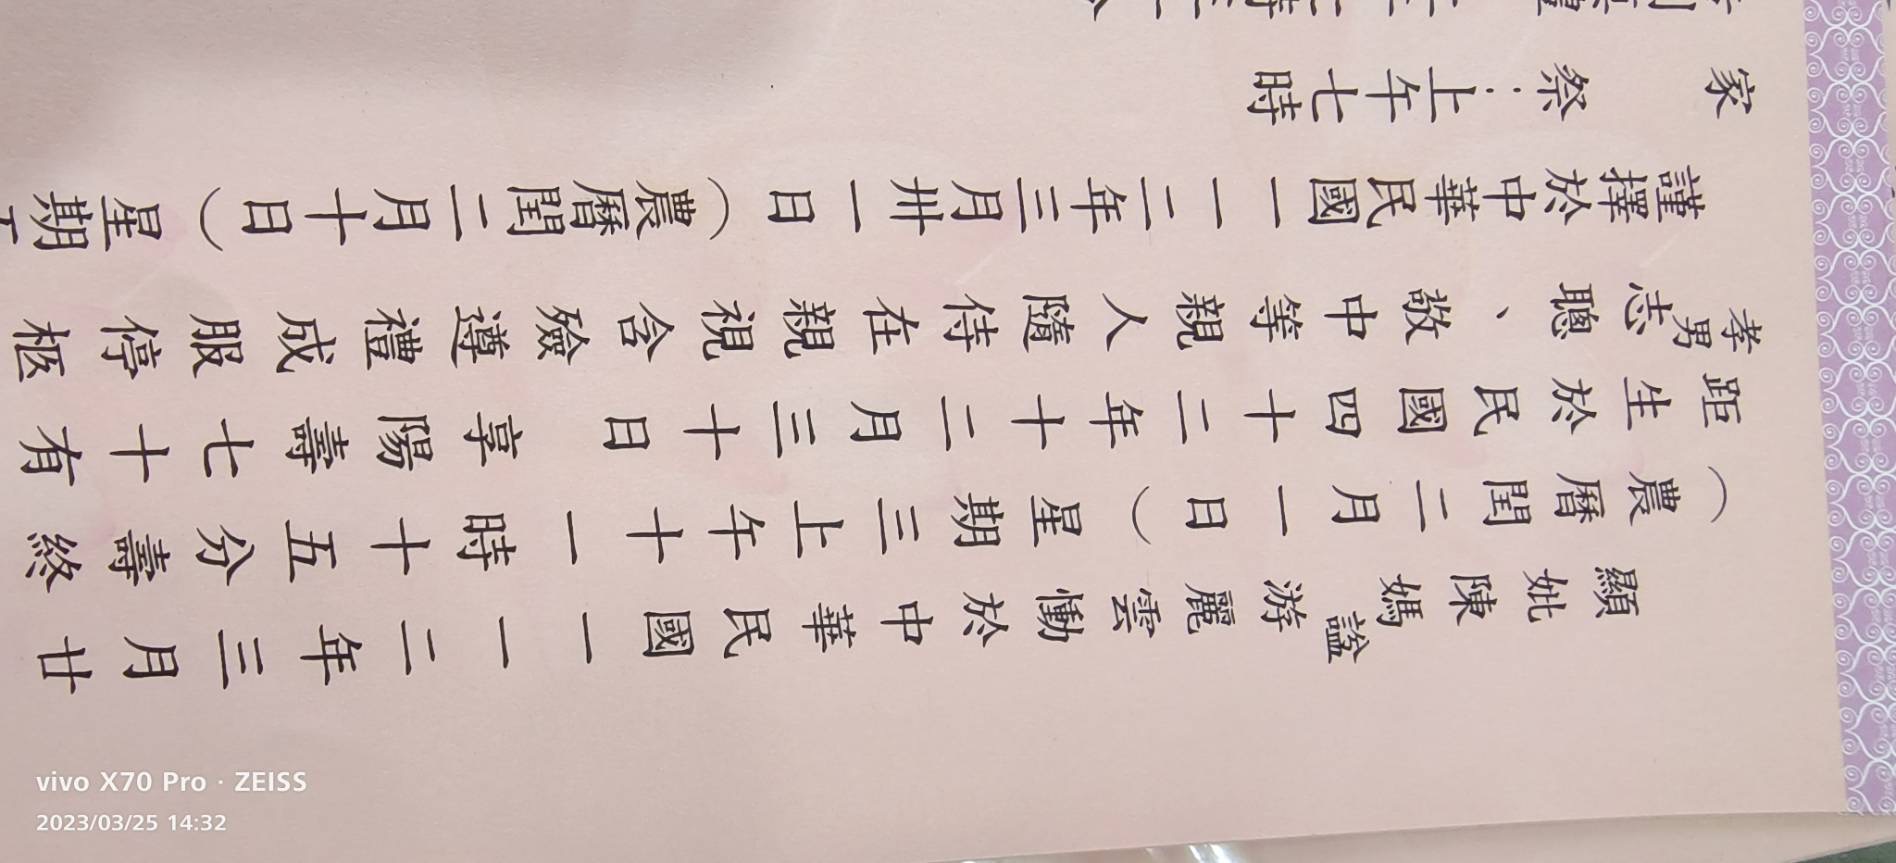 顯妣陳媽諡游麗雲慟於中華民國一一二年三月廿
（農曆閏二月一日）星期三上午十一時十五分壽終
距生於民國四十二年十二月三十日 享陽壽七十有
孝男志聰、敬中等親人隨侍在親視含殮遵禮成服停柩
謹擇於中華民國一一二年三月卅一日（農曆閏二月十日）星期
家 祭：上午七時
vivo X70 Pro · ZEISS
2023/03/25 14:32